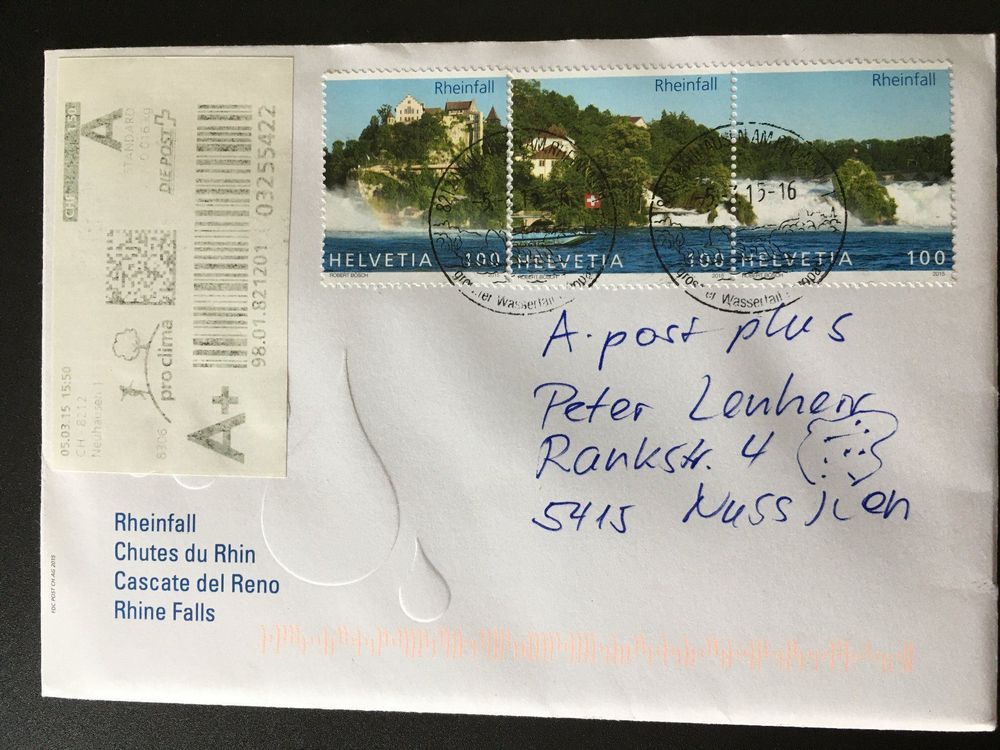 CHF
1.50
A
STANDARD
DIE POST
98.01.821201 03255422
A+
pro clima
8306
05.03.15 15:50
CH - 8212
Neuhausen 1
Rheinfall
Rheinfall
Rheinfall
HELVETIA 100
HELVETIA 100
HELVETIA 100
ROBERT BOSCH
ROBERT BOSCH 2015
ROBERT BOSCH 2015
15-16
Wasserfall
Wasserfall
A-post plus
Peter Lenherr
Rankstr. 4
5415 Nussb
Rheinfall
Chutes du Rhin
Cascate del Reno
Rhine Falls
FDC POST CH AG 2015